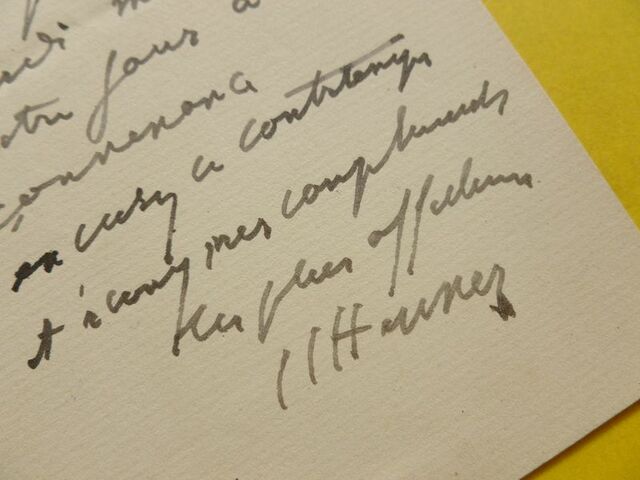 jour
conviendra
excusez ce contretemps
et recevez mes compliments
les plus affectueux
JJ Henner